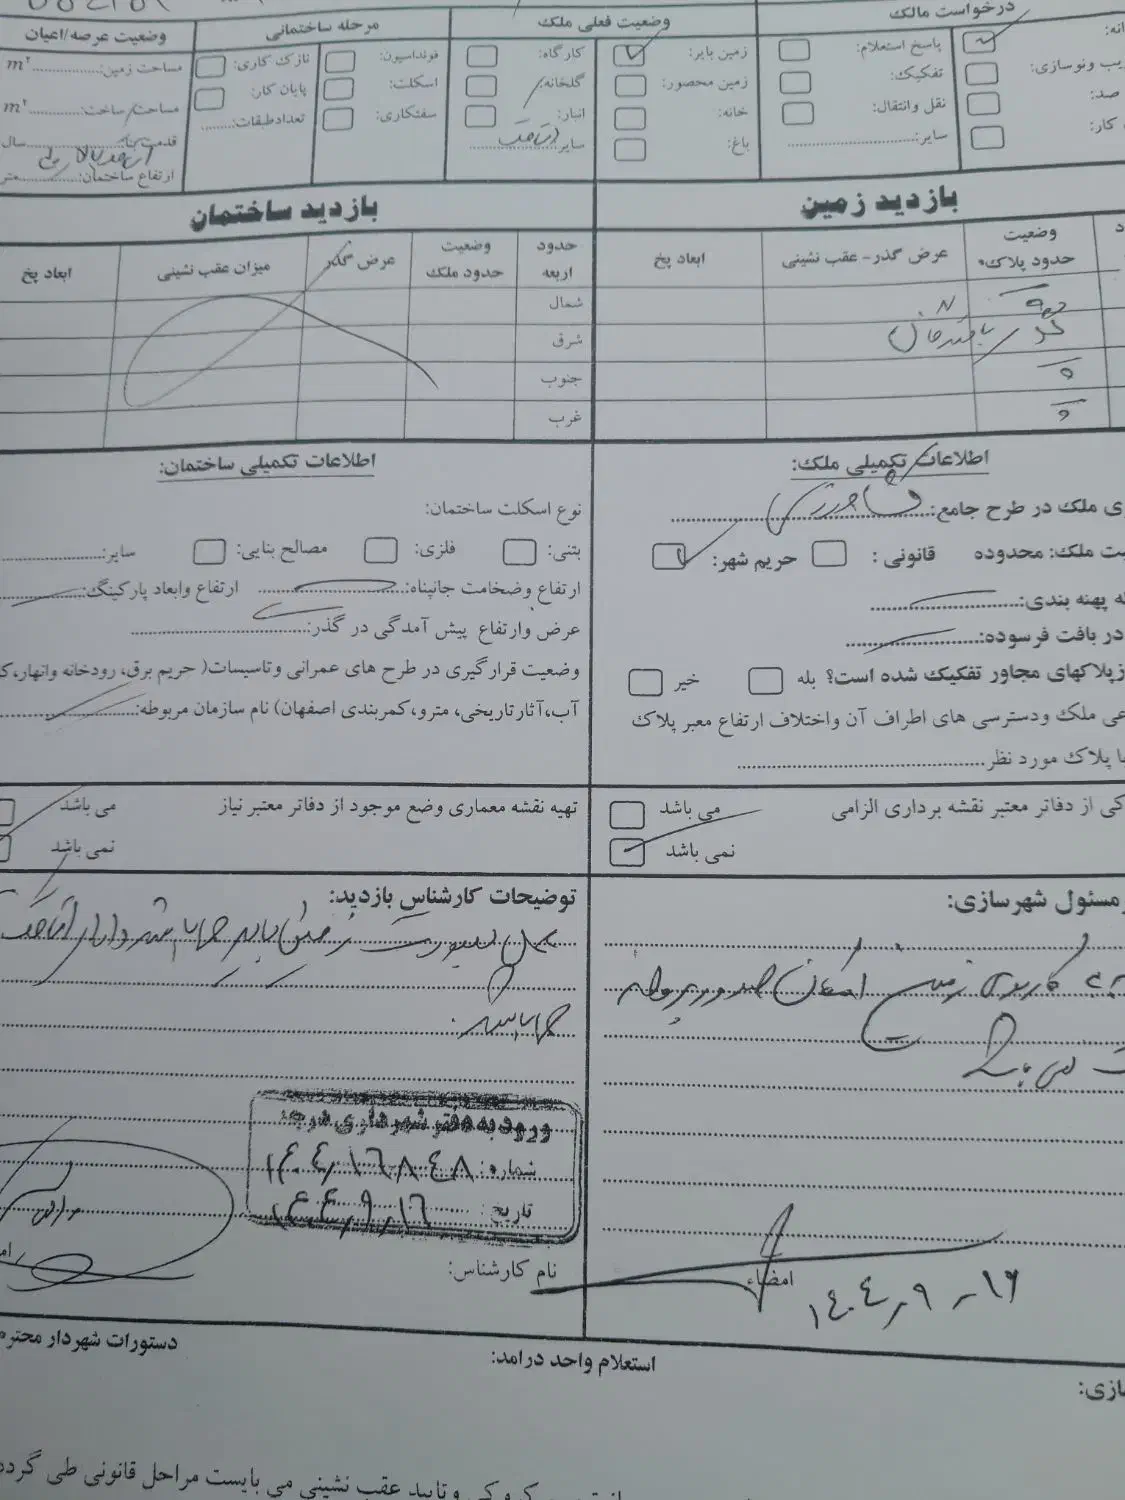 درخواست مالک
وضعیت فعلی ملک
مرحله ساختمانی
وضعیت عرصه/اعیان
پاسخ استعلام:
زمین بایر:
کارگاه:
فونداسیون:
نازک کاری:
مساحت زمین: m²
یب ونوسازی:
تفکیک:
زمین محصور:
گلخانه:
اسکلت:
پایان کار:
صد:
نقل وانتقال:
خانه:
انبار:
سفتکاری:
تعدادطبقات:
مساحت ساخت: m²
کار:
سایر:
باغ:
سایر: اتاقک
قدمت بنا: سال
ارتفاع ساختمان: متر
بازدید زمین
بازدید ساختمان
وضعیت حدود پلاک
عرض گذر- عقب نشینی
ابعاد پخ
حدود اربعه
وضعیت حدود ملک
عرض گذر
میزان عقب نشینی
ابعاد پخ
شمال
شرق
جنوب
غرب
اطلاعات تکمیلی ملک:
ی ملک در طرح جامع:
ت ملک: محدوده قانونی : حریم شهر:
ه پهنه بندی:
در بافت فرسوده:
زپلاکهای مجاور تفکیک شده است؟ بله خیر
عی ملک ودسترسی های اطراف آن واختلاف ارتفاع معبر پلاک
ا پلاک مورد نظر:
اطلاعات تکمیلی ساختمان:
نوع اسکلت ساختمان:
بتنی: فلزی: مصالح بنایی: سایر:
ارتفاع وضخامت جانپناه: ارتفاع وابعاد پارکینگ:
عرض وارتفاع پیش آمدگی در گذر:
وضعیت قرارگیری در طرح های عمرانی وتاسیسات( حریم برق، رودخانه وانهار،ک
آب،آثارتاریخی، مترو،کمربندی اصفهان) نام سازمان مربوطه:
کی از دفاتر معتبر نقشه برداری الزامی
می باشد
نمی باشد
تهیه نقشه معماری وضع موجود از دفاتر معتبر نیاز
می باشد
نمی باشد
مسئول شهرسازی:
کاربری زمین امکان صدور پروانه
نمی باشد
امضاء
۱۴۰۴٫۹٫۱۶
توضیحات کارشناس بازدید:
محل بصورت زمین بایر میباشد و دارای اتاقک
میباشد.
ورود به دفتر شهرداری
شماره: ۱۴۰۴٫۱۶۸۴۸
تاریخ: ۱۴۰۴٫۹٫۱۶
نام کارشناس:
استعلام واحد درامد:
دستورات شهردار محترم
ازی:
کروکی وتایید عقب نشینی می بایست مراحل قانونی طی گردد